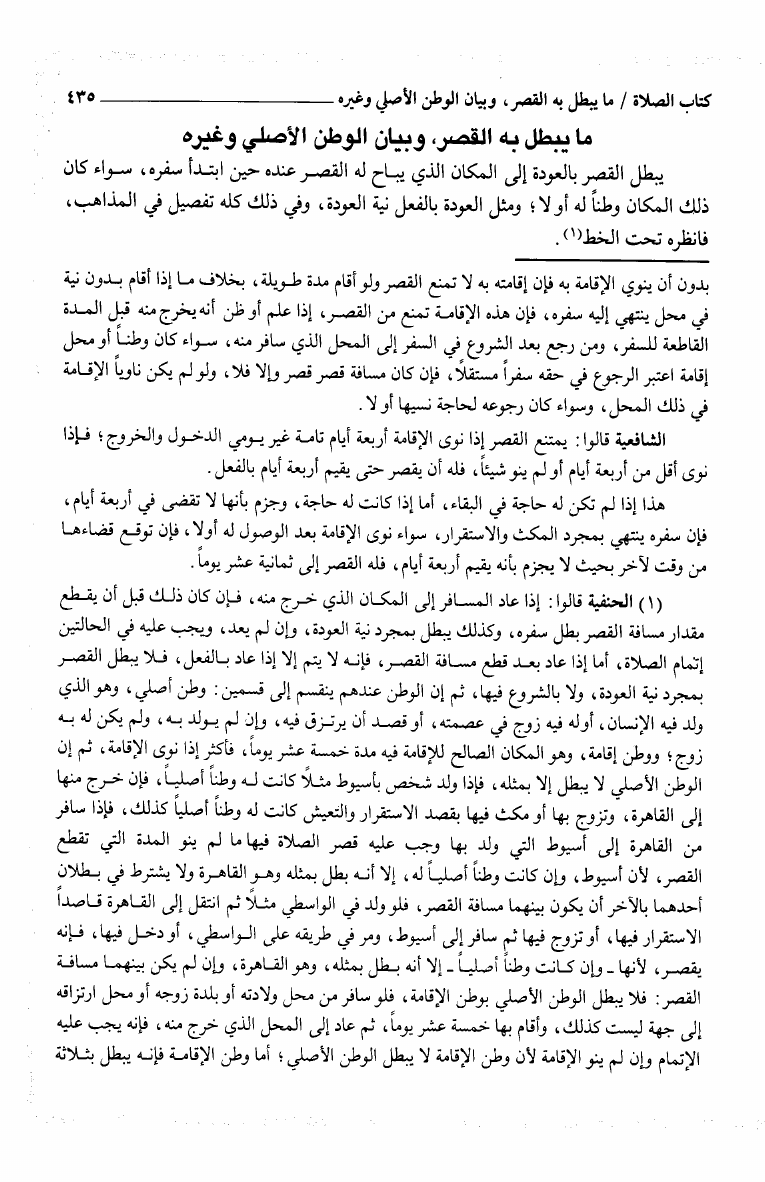 كتاب الصلاة / ما يبطل به القصر، وبيان الوطن الأصلي وغيره ٤٣٥
ما يبطل به القصر، وبيان الوطن الأصلي وغيره
يبطل القصر بالعودة إلى المكان الذي يباح له القصر عنده حين ابتدأ سفره، سواء كان
ذلك المكان وطناً له أو لا؛ ومثل العودة بالفعل نية العودة، وفي ذلك كله تفصيل في المذاهب،
فانظره تحت الخط(١).
بدون أن ينوي الإقامة به فإن إقامته به لا تمنع القصر ولو أقام مدة طويلة، بخلاف ما إذا أقام بدون نية
في محل ينتهي إليه سفره، فإن هذه الإقامة تمنع من القصر، إذا علم أو ظن أنه يخرج منه قبل المدة
القاطعة للسفر، ومن رجع بعد الشروع في السفر إلى المحل الذي سافر منه، سواء كان وطناً أو محل
إقامة اعتبر الرجوع في حقه سفراً مستقلاً، فإن كان مسافة قصر قصر وإلا فلا، ولو لم يكن ناوياً الإقامة
في ذلك المحل، وسواء كان رجوعه لحاجة نسيها أو لا.
الشافعية قالوا: يمتنع القصر إذا نوى الإقامة أربعة أيام تامة غير يومي الدخول والخروج؛ فإذا
نوى أقل من أربعة أيام أو لم ينو شيئاً، فله أن يقصر حتى يقيم أربعة أيام بالفعل.
هذا إذا لم تكن له حاجة في البقاء، أما إذا كانت له حاجة، وجزم بأنها لا تقضى في أربعة أيام،
فإن سفره ينتهي بمجرد المكث والاستقرار، سواء نوى الإقامة بعد الوصول له أولا، فإن توقع قضاءها
من وقت لآخر بحيث لا يجزم بأنه يقيم أربعة أيام، فله القصر إلى ثمانية عشر يوماً.
(١) الحنفية قالوا: إذا عاد المسافر إلى المكان الذي خرج منه، فإن كان ذلك قبل أن يقطع
مقدار مسافة القصر بطل سفره، وكذلك يبطل بمجرد نية العودة، وإن لم يعد، ويجب عليه في الحالتين
إتمام الصلاة، أما إذا عاد بعد قطع مسافة القصر، فإنه لا يتم إلا إذا عاد بالفعل، فلا يبطل القصر
بمجرد نية العودة، ولا بالشروع فيها، ثم إن الوطن عندهم ينقسم إلى قسمين: وطن أصلي، وهو الذي
ولد فيه الإنسان، أوله فيه زوج في عصمته، أو قصد أن يرتزق فيه، وإن لم يولد به، ولم يكن له به
زوج؛ ووطن إقامة، وهو المكان الصالح للإقامة فيه مدة خمسة عشر يوماً، فأكثر إذا نوى الإقامة، ثم إن
الوطن الأصلي لا يبطل إلا بمثله، فإذا ولد شخص بأسيوط مثلاً كانت له وطناً أصلياً، فإن خرج منها
إلى القاهرة، وتزوج بها أو مكث فيها بقصد الاستقرار والتعيش كانت له وطناً أصلياً كذلك، فإذا سافر
من القاهرة إلى أسيوط التي ولد بها وجب عليه قصر الصلاة فيها ما لم ينو المدة التي تقطع
القصر، لأن أسيوط، وإن كانت وطناً أصلياً له، إلا أنه بطل بمثله وهو القاهرة ولا يشترط في بطلان
أحدهما بالآخر أن يكون بينهما مسافة القصر، فلو ولد في الواسطي مثلاً ثم انتقل إلى القاهرة قاصداً
الاستقرار فيها، أو تزوج فيها ثم سافر إلى أسيوط، ومر في طريقه على الواسطي، أو دخل فيها، فإنه
يقصر، لأنها ـ وإن كانت وطناً أصلياً ـ إلا أنه بطل بمثله، وهو القاهرة، وإن لم يكن بينهما مسافة
القصر: فلا يبطل الوطن الأصلي بوطن الإقامة، فلو سافر من محل ولادته أو بلدة زوجه أو محل ارتزاقه
إلى جهة ليست كذلك، وأقام بها خمسة عشر يوماً، ثم عاد إلى المحل الذي خرج منه، فإنه يجب عليه
الإتمام وإن لم ينو الإقامة لأن وطن الإقامة لا يبطل الوطن الأصلي؛ أما وطن الإقامة فإنه يبطل بثلاثة